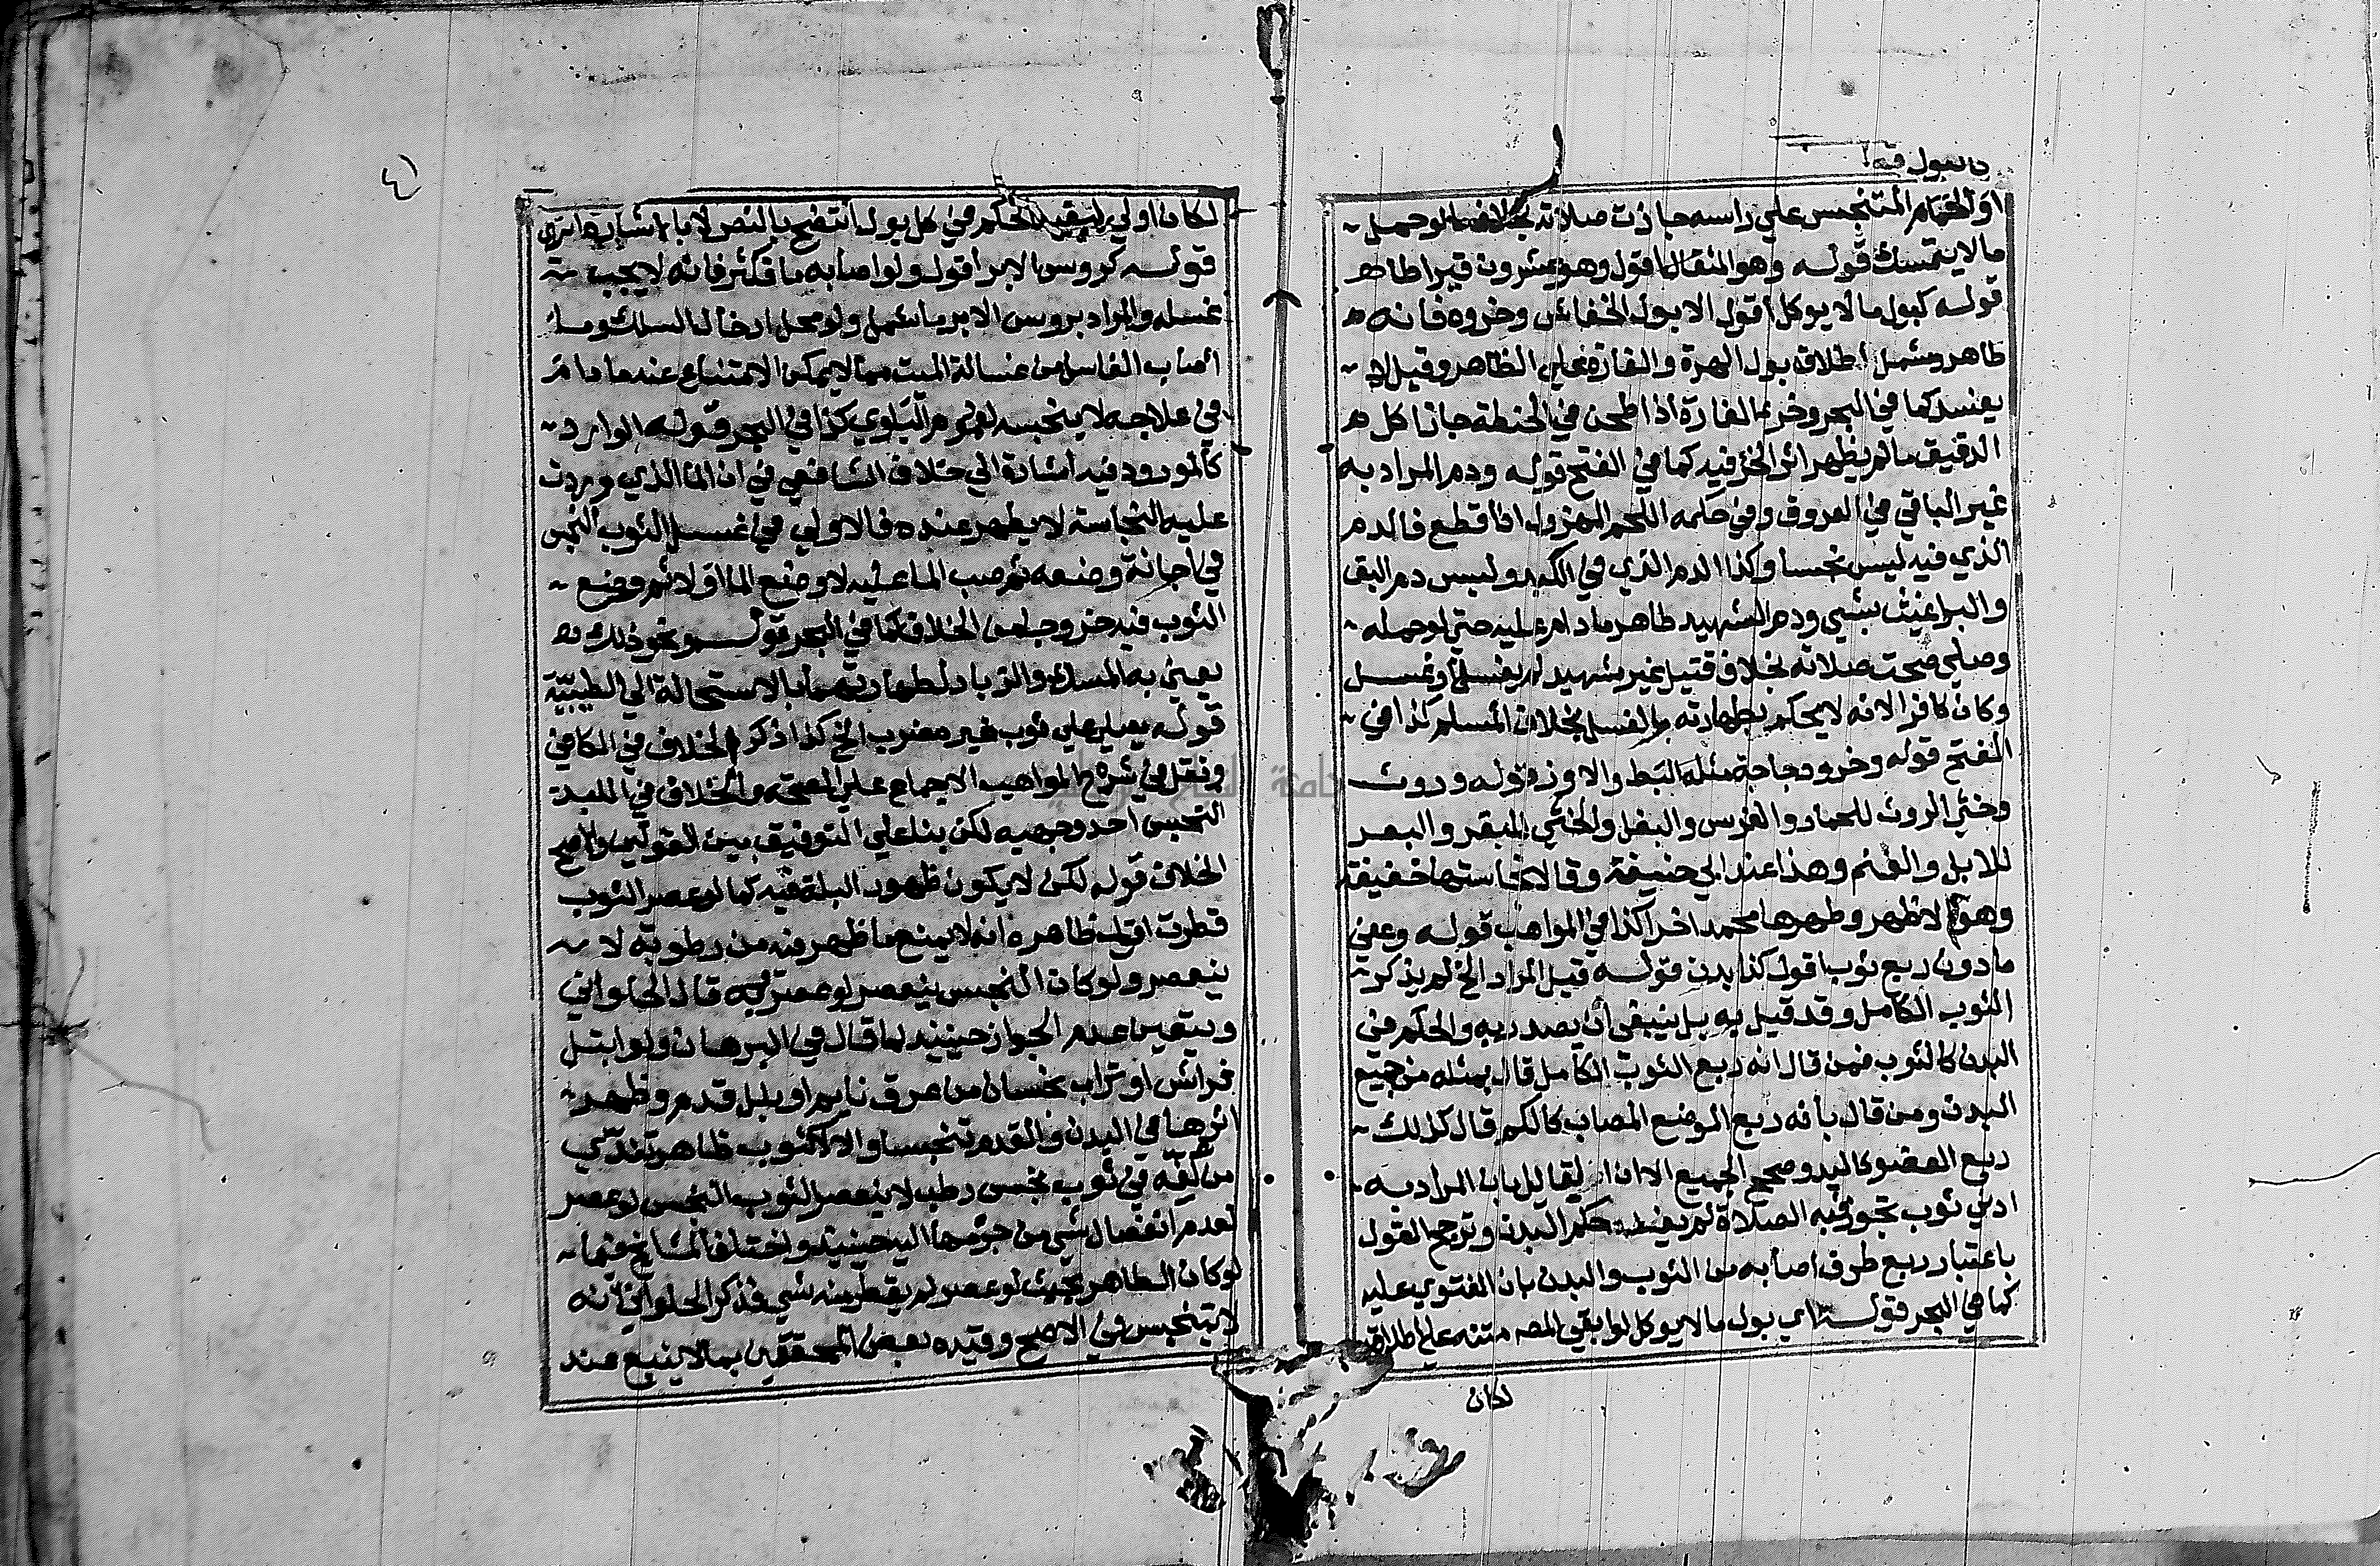 او الحمام المتنجس علي راسه جازت صلاته بخلاف ما لو حمل
ما لا يتمسك قوله وهو المثقال اقول وهو عشرون قيراطا ه
قوله كبول ما لا يوكل اقول الا بول الخفاش وخروه فانه ه
طاهر وشمل اطلاقه بول الهرة والفارة علي الظاهر وقيل لا
يفسد كما في البحر وخرء الفارة اذا طحن في الحنطة جاز اكل ه
الدقيق ما لم يظهر اثر الخرء فيه كما في الفتح قوله ودم المراد به
غير الباقي في العروق وفي حكمه اللحم المهزول اذا قطع فالدم
الذي فيه ليس نجسا وكذا الدم الذي في الكبد وليس دم البق
والبراغيث بشيي ودم الشهيد طاهر ما دام عليه حتي لو حمله
وصلي صحت صلاته بخلاف قتيل غير شهيد لم يغسل او غسل
وكان كافرا لانه لا يحكم بطهارته بالغسل بخلاف المسلم كذا في
الفتح قوله وخرو دجاجة مثله البط والاوز قوله وروث
وخثي الروث للحمار والفرس والبغل والخثي للبقر والبعر
للابل والغنم وهذا عند ابي حنيفة وقالا نجاستها خفيفة
وهو الاظهر وطهرها محمد اخرا كذا في المواهب قوله وعفي
ما دون ربع ثوب اقول كذا بدن قوله قيل المراد الخ لم يذكر
الثوب الكامل وقد قيل به بل ينبغي ان يصدر به والحكم في
البدن كالثوب فمن قال انه ربع الثوب الكامل قال بمثله من جميع
البدن ومن قال بانه ربع الموضع المصاب كالكم قال كذلك
ربع العضو كاليد وصحح الجميع الا ان القايل بان المراد به
ادني ثوب تجوز فيه الصلاة لم يفد حكم البدن وترجح القول
باعتبار ربع طرف اصابه من الثوب والبدن بان الفتوي عليه
كما في البحر قوله اي بول ما لا يوكل لو ابقي المص متنه علي اطلاقه
لكان
لكان اولي ليفيد الحكم في كل بول انتضح بالنص لا باشارة
قوله كروس الابر اقول ولو اصابه ما فكثر فانه لا يجب
غسله والمراد بروس الابر ما شمل ولو محل ادخال السلك وما
اصاب الغاسل من غسالة الميت مما لا يمكن الامتناع عنه ما دام
في علاجه لا ينجسه لعموم البلوي كذا في البحر قوله الوارد
كالمورود فيه اشارة الي خلاف الشافعي في ان الما الذي وردت
عليه النجاسة لا يطهر عنده فالاولي في غسل الثوب النجس
في اجانة وضعه ثم صب الما عليه لا وضع الما اولا ثم وضع
الثوب فيه خروجا من الخلاف كما في البحر قوله ونحو ذلك
يعني به المسك والزباد لطهارتهما بالاستحالة الي الطيبية
قوله يصلي علي ثوب غير مضرب الخ كذا ذكر الخلاف في الكافي
ونقل في شرح المواهب الاجماع علي الصحة والخلاف في الملبد
النجس احد وجهيه لكن بنا علي التوفيق بين القولين والاصح
الخلاف قوله لكن لا يكون ظهور البلة فيه كما لو عصر الثوب
قطرت اقول ظاهره انه لا يمنع ما ظهر فيه من رطوبة لا
ينعصر ولو كان النجس ينعصر لو عصر به قال الحلواني
ويتعين عدم الجواز حينيذ لما قال في البرهان ولو ابتل
فراش او تراب نجسان من عرق نايم او بلل قدم وظهر
اثرها في البدن والقدم تنجسا والا لا كثوب طاهر تندي
من لفه في ثوب نجس رطب لا ينعصر الثوب النجس لو عصر
لعدم انفصال شيي من جرمها اليه حينيذ واختلف المشايخ فيما
لو كان الطاهر بحيث لو عصر لم يقطر منه شيي فذكر الحلواني انه
لا يتنجس في الاصح وقيده بعض المحققين بما لا ينبع عند